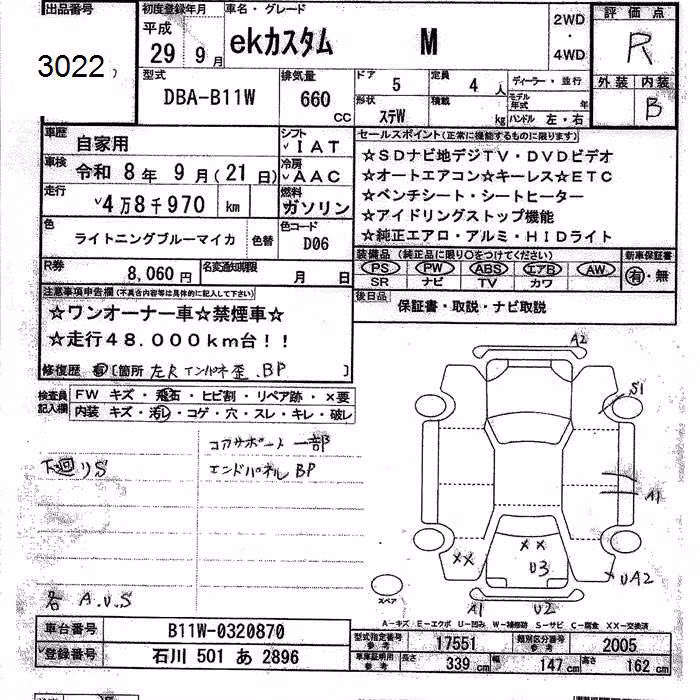 出品番号
3022
初度登録年月
平成
29 9月
車名・グレード
ekカスタム M
2WD
・
4WD
評価点
R
外装 内装
B
型式
DBA-B11W
排気量
660
CC
ドア 5
定員 4 人
ディーラー・並行
モデル年式 年
形状 ステW
積載 kg
ハンドル 左・右
車歴
自家用
シフト
IAT
車検
令和 8年 9月(21日)
冷房
AAC
走行
4万8千970 km
燃料
ガソリン
色
ライトニングブルーマイカ
色替
色コード
D06
R券
8,060円
名変通知期限
月 日
セールスポイント(正常に機能するものに限ります)
☆SDナビ地デジTV・DVDビデオ
☆オートエアコン☆キーレス☆ETC
☆ベンチシート・シートヒーター
☆アイドリングストップ機能
☆純正エアロ・アルミ・HIDライト
装備品(純正品に限り○をつけてください)
新車保証書
PS PW ABS エアB AW
SR ナビ TV カワ
有・無
後日品
保証書・取説・ナビ取説
注意事項申告欄(不具合内容等は具体的に記入して下さい)
☆ワンオーナー車☆禁煙車☆
☆走行48.000km台!!
修復歴 有 [箇所 左R インパネ歪 . BP ]
検査員
記入欄
FW キズ・飛石・ヒビ割・リペア跡・×要
内装 キズ・汚レ・コゲ・穴・スレ・キレ・破レ
コアサポート一部
エンドパネル BP
下廻リS
A.U.S
A2
S1
A1
××
××
U3
UA2
A1
U2
スペア
A-キズ E-エクボ U-凹み W-補修跡 S-サビ C-腐食 XX-交換済
車台番号
B11W-0320870
登録番号
石川 501 あ 2896
型式指定番号
参考
17551
類別区分番号
参考
2005
車庫証明用
参考
長さ 339 cm
幅 147 cm
高さ 162 cm